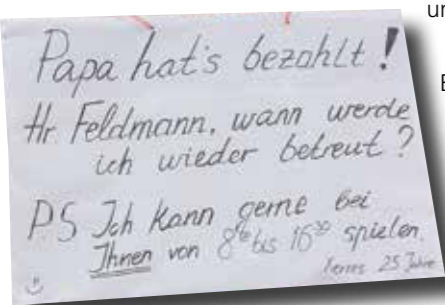 ur
E
Papa hat's bezahlt!
Hr. Feldmann, wann werde
ich wieder betreut?
PS Ich kann gerne bei
Ihnen von 8⁰⁰ bis 16³⁰ spielen.
2,5 Jahre